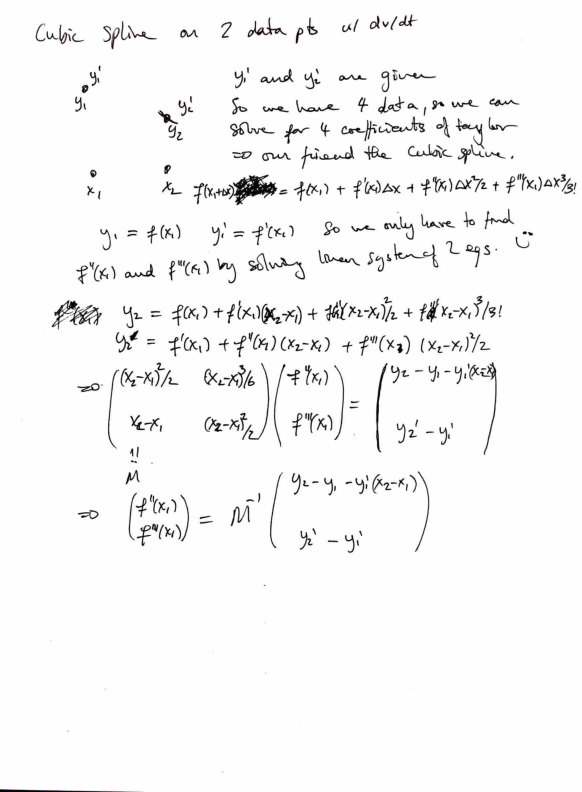 Cubic Spline on 2 data pts w/ dv/dt
y₁' y₁' and y₂' are given
y₁ y₂' So we have 4 data, so we can
y₂ solve for 4 coefficients of taylor
⇒ our friend the cubic spline.
x₁ x₂ f(x₁+Δx) = f(x₁) + f'(x₁)Δx + f''(x₁)Δx²/2 + f'''(x₁)Δx³/3!
y₁ = f(x₁) y₁' = f'(x₁) So we only have to find
f''(x₁) and f'''(x₁) by solving linear system of 2 eqs.
y₂ = f(x₁) + f'(x₁)(x₂-x₁) + f''(x₂-x₁)²/2 + f'''(x₂-x₁)³/3!
y₂' = f'(x₁) + f''(x₁)(x₂-x₁) + f'''(x₁)(x₂-x₁)²/2
⇒ ((x₂-x₁)²/2 (x₂-x₁)³/6) (f''(x₁)) = (y₂ - y₁ - y₁'(x₂-x₁))
(x₂-x₁ (x₂-x₁)²/2) (f'''(x₁)) (y₂' - y₁')
M
⇒ (f''(x₁)) = M⁻¹ (y₂ - y₁ - y₁'(x₂-x₁))
(f'''(x₁)) (y₂' - y₁')